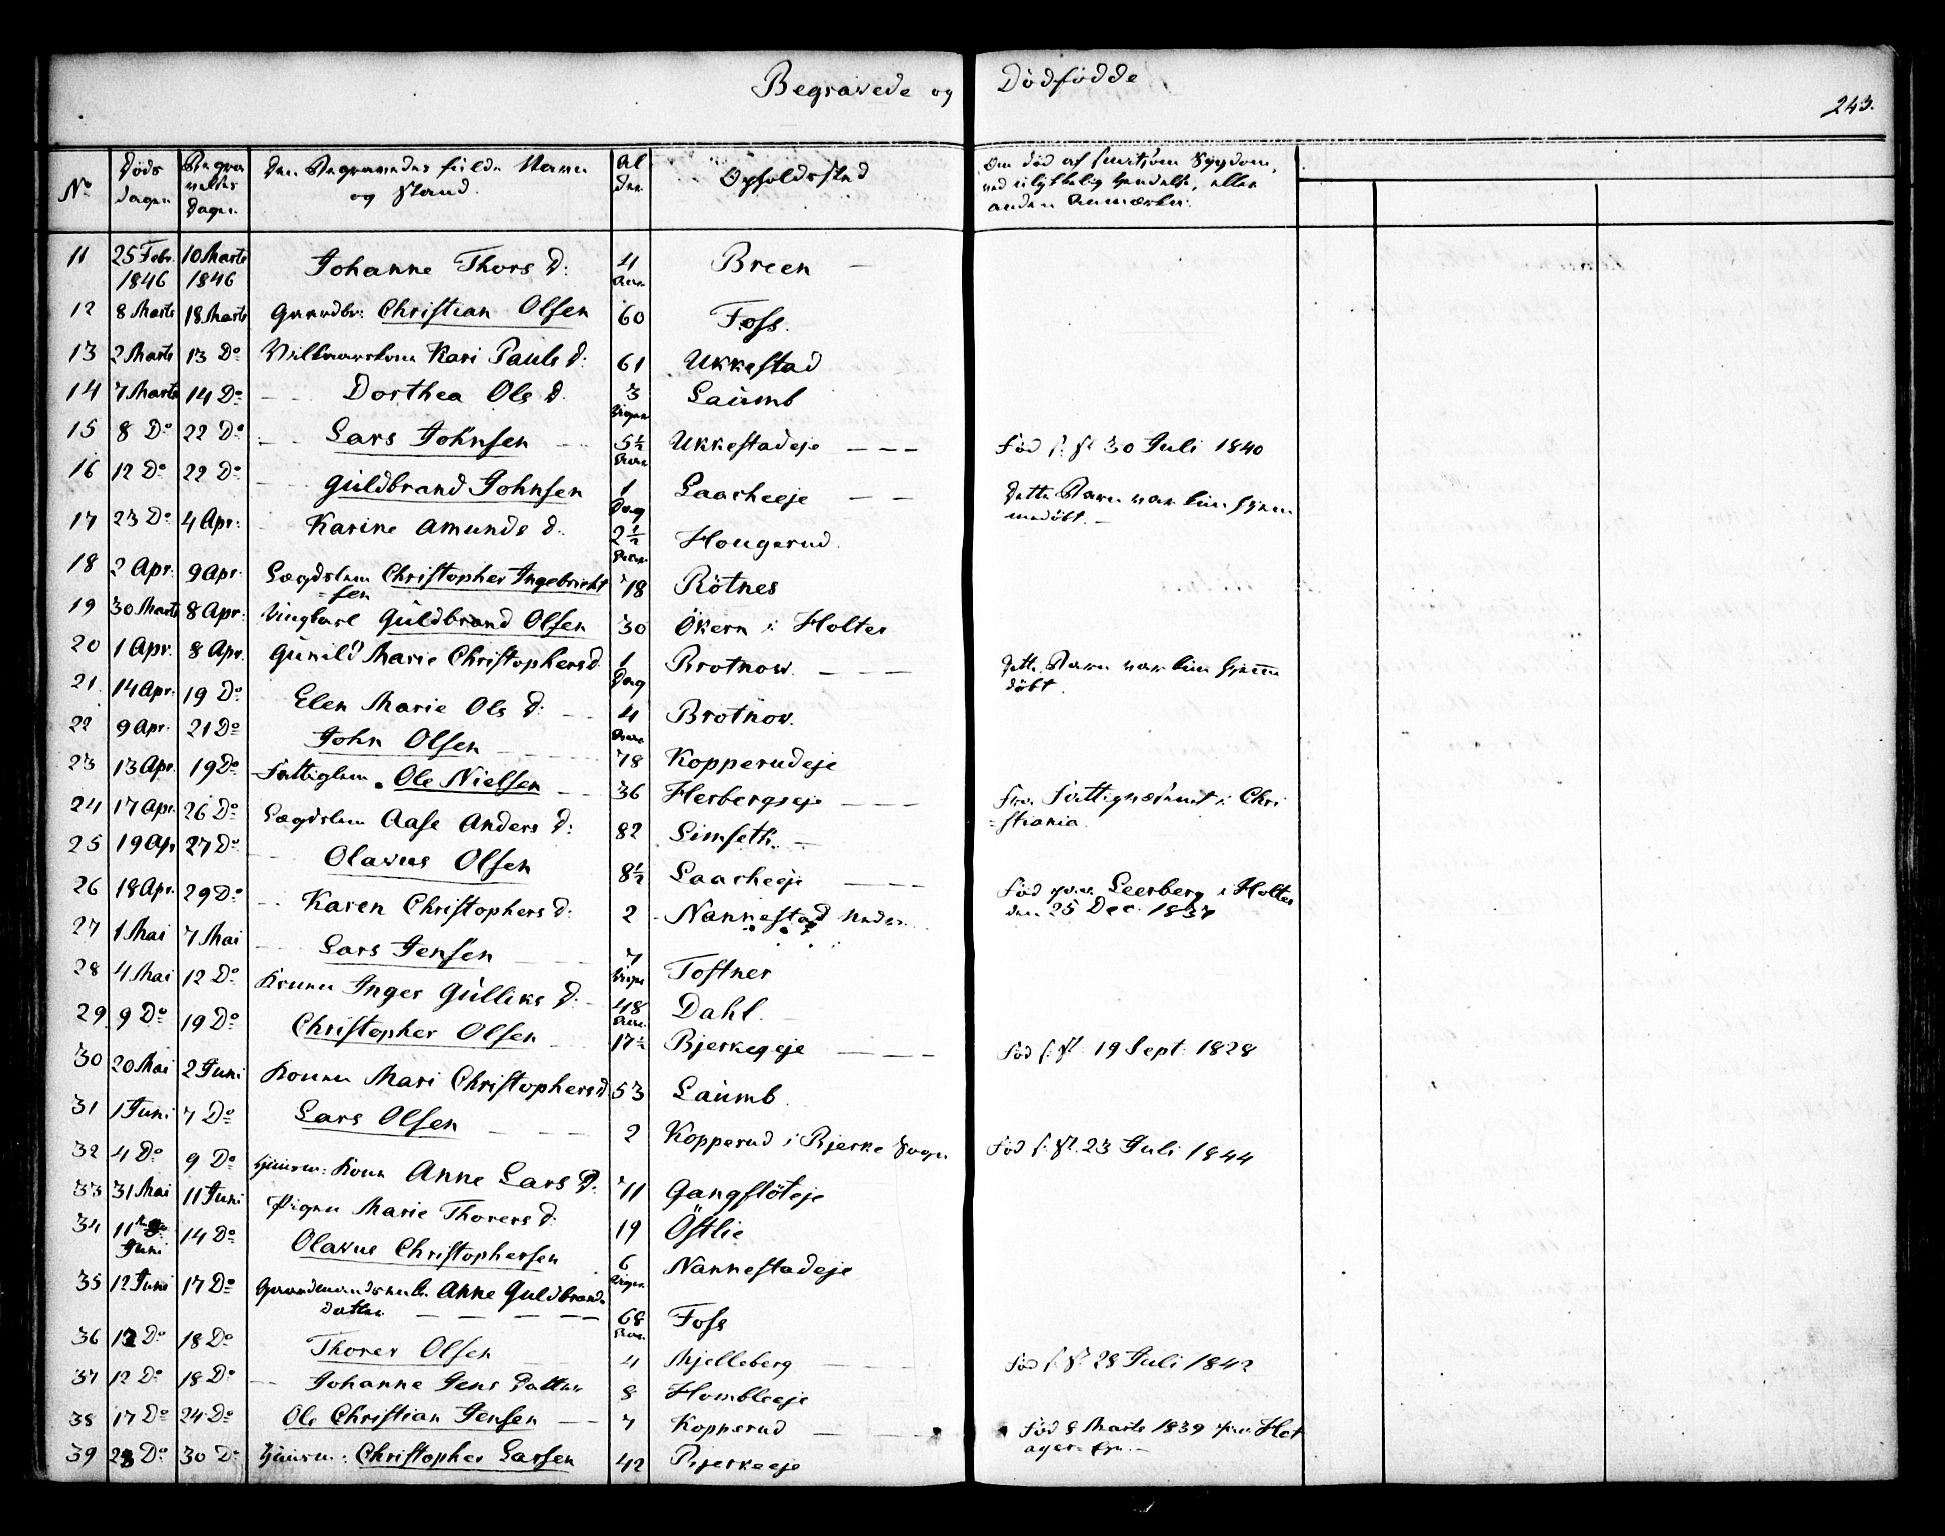 Begravede og Dødfødde
243.
No Døds dagen Begravelses Dagen Den Begravedes fulde Navn og Stand. Alder Opholdssted Om død af smitsom Sygdom, ved ulykkelig Hændelse, eller anden Anmærkn:
11 25 Febr. 1846 10 Marts 1846 Johanne Thors d: 4 Aar Breen
12 8 Marts 18 Marts Gaardbr: Christian Olsen 60 Foss.
13 2 Marts 13 Do Vilkaarskone Kari Pauls d: 61 Ukkestad
14 7 Marts 14 Do Dorthea Ols d. 3 Uger Laumb
15 8 Do 22 Do Lars Johnsen 5½ Aar Ukkestadeje Fød 30 Juli 1840
16 12 Do 22 Do Guldbrand Johnsen 1 Dag Laacheeje Dette Barn var kun hjemmedøbt.
17 23 Do 4 Apr: Karine Amunds d. 2½ Hougerud.
18 2 Apr. 9 Apr. Lægdslem Christopher Ingebricht=sen 78 Rötnes
19 30 Marts 8 Apr: Ungkarl Guldbrand Olsen 30 Ökern i Holter
20 1 Apr. 8 Apr. Gunild Marie Christophersd. 1 Dag Brotnow. Dette Barn var kun hjemmedöbt.
21. 14 Apr. 19 Do Elen Marie Ols d: 4 Brotnov.
22 9 Apr. 21 Do John Olsen 78 Kopperudeje
23 13 Apr. 19 Do Fattiglem Ole Nielsen 36 Herbergseje Chri=stiania.
24 17 Apr. 26 Do Lægdslem Aase Anders d: 82 Simseth.
25 19 Apr 27 Do Olavus Olsen 8½ Laacheeje Fød Leerberg i Holter den 25 Dec. 1837
26 18 Apr. 29 Do Karen Christophers d: 2 Nannestad
27 1 Mai 7 Mai Lars Jensen 7 Toftner
28 4 Mai 12 Do Konen Inger Gulliks d. 48 Dahl.
29 9 Do 19 Do Christopher Olsen 17½ Bjerkegeje Fød 19 Sept. 1828
30 20 Mai 2 Juni Konen Mari Christophersd 53 Laumb
31 1 Juni 7 Do Lars Olsen 2 Kopperud i Bjerke Sogn Fød 23 Juli 1844
32 4 Do 9 Do Huusm: Kone Anne Lars d: 71 Gangflöteje
33 31 Mai 11 Juni Pigen Marie Thorers d. 19 Östlie
34 11 Juni 14 Do Olavus Christophersen 6 Uger Nannestadeje
35 12 Juni 17 Do Anne Guldbrands datter 68 Aar. Foss
36 12 Do 18 Do Thorer Olsen 4 Mjelleberg Fød 28 Juli 1842
37 12 Do 18 Do Johanne Jens Datter 8 Hombleeje
38 17 Do 24 Do Ole Christian Jensen 7 Kopperud Fød 8 Marts 1839
39 23 Do 30 Do Huusm: Christopher Larsen 42 Bjerkeeje